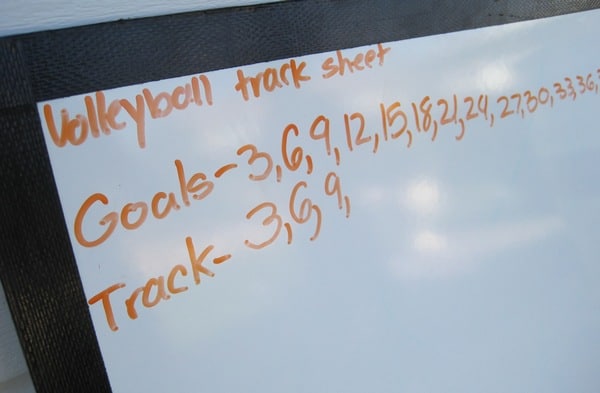 Volleyball track sheet
Goals-3,6,9,12,15,18,21,24,27,30,33,36,
Track-3,6,9,